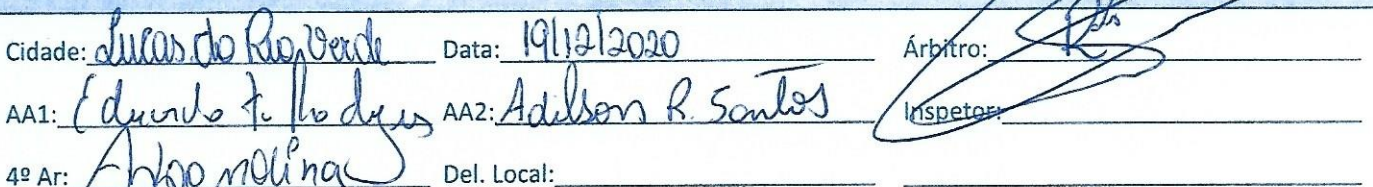 Cidade: Lucas do Rio Verde Data: 19/12/2020 Árbitro:
AA1: Eduardo F. Rodrigues AA2: Adilson R. Santos Inspetor:
4º Ar: Molina Del. Local: